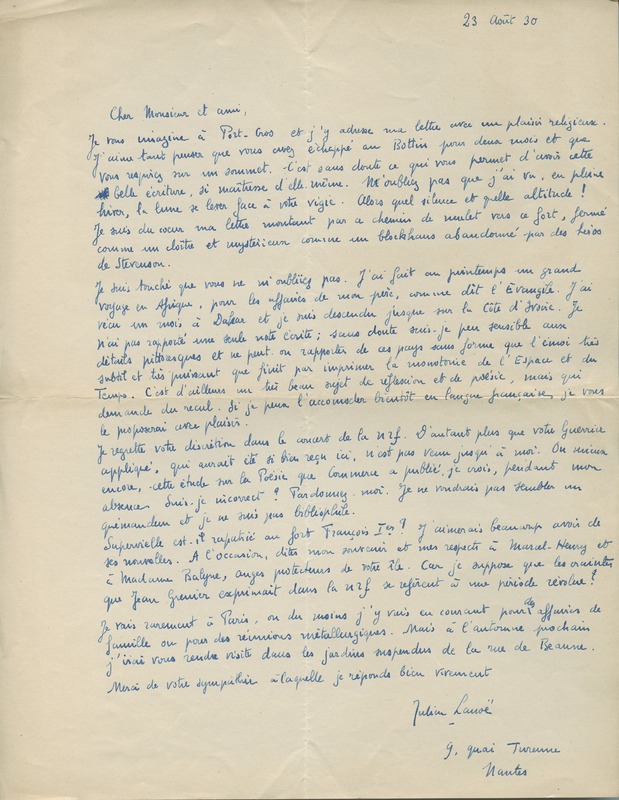 23 Août 30
Cher Monsieur et ami,
Je vous imagine à Port-Cros et j'y adresse ma lettre avec un plaisir religieux.
J'aime tant penser que vous avez échappé au Bottin pour deux mois et que
vous respirez sur un sommet. C'est sans doute ce qui vous permet d'avoir cette
belle écriture, si maîtresse d'elle-même. N'oubliez pas que j'ai vu, en plein
hiver, la lune se lever face à votre vigie. Alors quel silence et quelle altitude !
Je suis du cœur ma lettre montant par ce chemin de mulet vers ce fort, fermé
comme un cloître et mystérieux comme un blockhaus abandonné par des héros
de Stevenson.
Je suis touché que vous ne m'oubliiez pas. J'ai fait au printemps un grand
voyage en Afrique, pour les affaires de mon père, comme dit l'Evangile. J'ai
vécu un mois à Dakar et je suis descendu jusque sur la Côte d'Ivoire. Je
n'ai pas rapporté une seule note écrite ; sans doute suis-je peu sensible aux
détails pittoresques et ne peut-on rapporter de ces pays sans forme que l'émoi très
subtil et très puissant que finit par imprimer la monotonie de l'Espace et du
Temps. C'est d'ailleurs un très beau sujet de réflexion et de poésie, mais qui
demande du recul. Si je peux l'accomoder bientôt en langue française, je vous
le proposerai avec plaisir.
Je regrette votre discrétion dans le concert de la nrf. D'autant plus que votre Guerrier
appliqué, qui aurait été si bien reçu ici, n'est pas venu jusqu'à moi. Ou mieux
encore, cette étude sur la Poésie que Commerce a publié, je crois, pendant mon
absence. Suis-je incorrect ? Pardonnez-moi. Je ne voudrais pas sembler un
quémandeur et je ne suis pas bibliophile.
Supervielle est-il rapatrié au fort François Ier ? J'aimerais beaucoup avoir de
ses nouvelles. A l'occasion, dites mon souvenir et mes respects à Marcel-Henry et
à Madame Balyne, anges protecteurs de votre île. Car je suppose que les craintes
que Jean Grenier exprimait dans la nrf se réfèrent à une période révolue ?
Je vais rarement à Paris, ou du moins j'y vais en courant pour des affaires de
famille ou pour des réunions métallurgiques. Mais à l'automne prochain
j'irai vous rendre visite dans les jardins suspendus de la rue de Beaune.
Merci de votre sympathie à laquelle je réponds bien vivement
Julien Lanoë
9, quai Turenne
Nantes